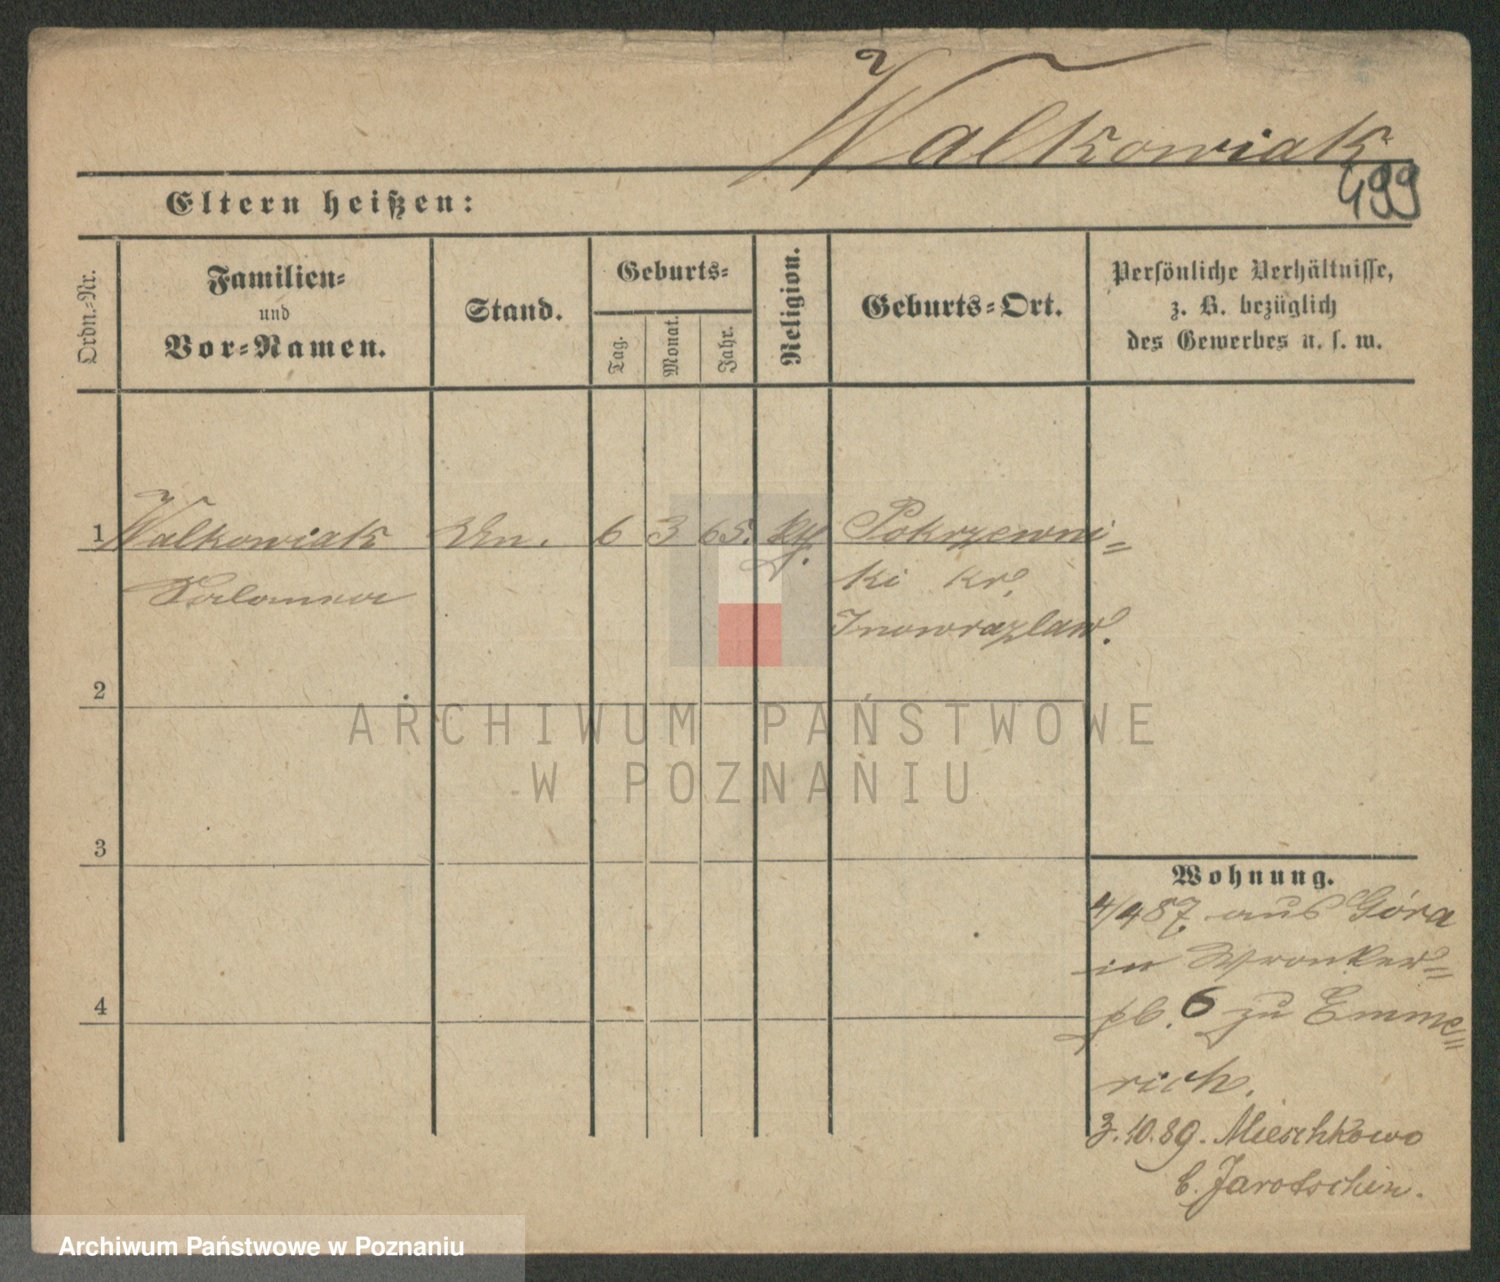 Walkowiak
499
Eltern heißen:
Ordn.-Nr.
Familien-
und
Vor-Namen.
Stand.
Geburts-
Tag.
Monat.
Jahr.
Religion.
Geburts-Ort.
Persönliche Verhältnisse,
z. B. bezüglich
des Gewerbes u. s. w.
1 Walkowiak 6 3 65. Pokrzewni-
ki kr.
Inowrazlaw.
2
3
4
Wohnung.
4/4 87. aus Góra
in Wronker-
pl. 6 zu Emme-
rich.
3.10.89. Mieschkowo
b. Jarotschin.
ARCHIWUM PAŃSTWOWE
W POZNANIU
Archiwum Państwowe w Poznaniu